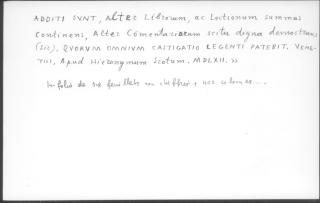 ADDITI SVNT, Alter Librorum, ac Lectionum summas
continens, Alter Comentariorum scitu digna demostrans
(sic), QVORVM OMNIVM CASTIGATIO LEGENTI PATEBIT. VENE-
TIIS, Apud Hieronymum Scotum. MDLXII. »
In folio de feuillets non chiffrés